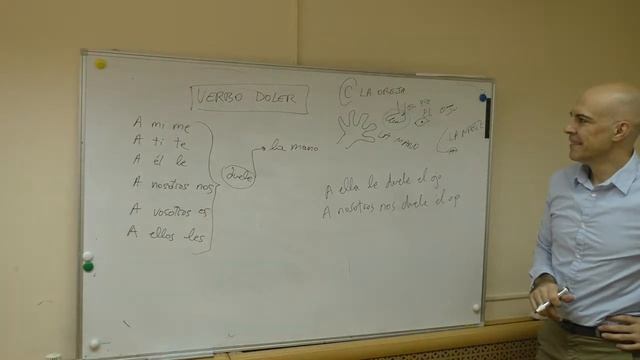 VERBO DOLER
A mi me
A ti te
A él le
A nosotros nos
A vosotros os
A ellos les
duele
la mano
LA OREJA
EL PIE
LA MANO
A ella le duele el ojo
A nosotros nos duele el ojo